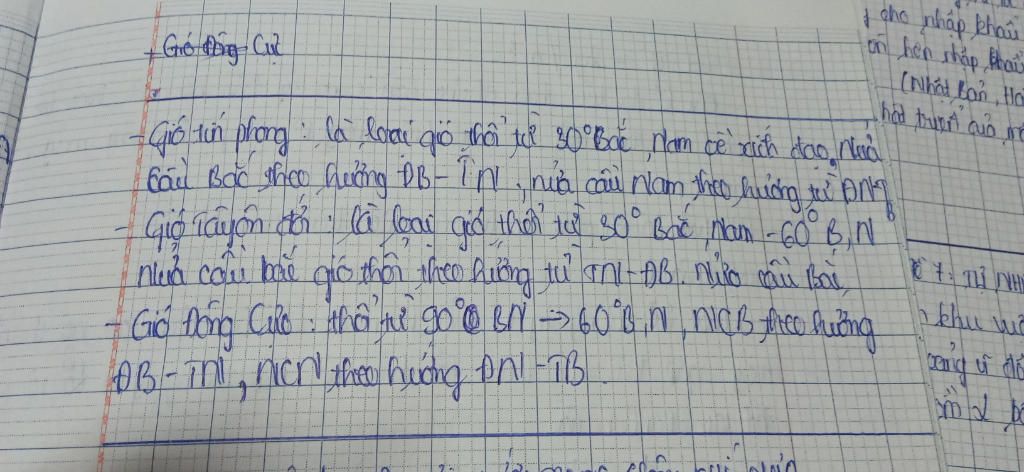 + Gió Đông Cực
- Gió tín phong : là loại gió thổi từ 30° Bắc, Nam về xích đạo, Nửa
cầu Bắc theo hướng ĐB-TN, nửa cầu Nam theo hướng từ ĐN
- Gió Tây ôn đới : là loại gió thổi từ 30° Bắc, Nam - 60° B, N
Nửa cầu bắc gió thổi theo hướng từ TN-ĐB. Nửa cầu Bắc,
- Gió Đông Cực : thổi từ 90° BN → 60° B, N, NCB theo hướng
ĐB-TN, NCN theo hướng ĐN-TB
cho nhập khẩu
(Nhật Bản,
khu